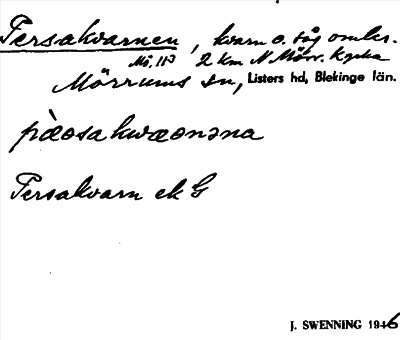 Persakvarnen, kvarn o. såg omkr.
Mö. 113 2 km N Mörr. kyrka
Mörrums sn, Listers hd, Blekinge län.
pæ̀osakwæonəna
Persakvarn ek G
J. SWENNING 1946